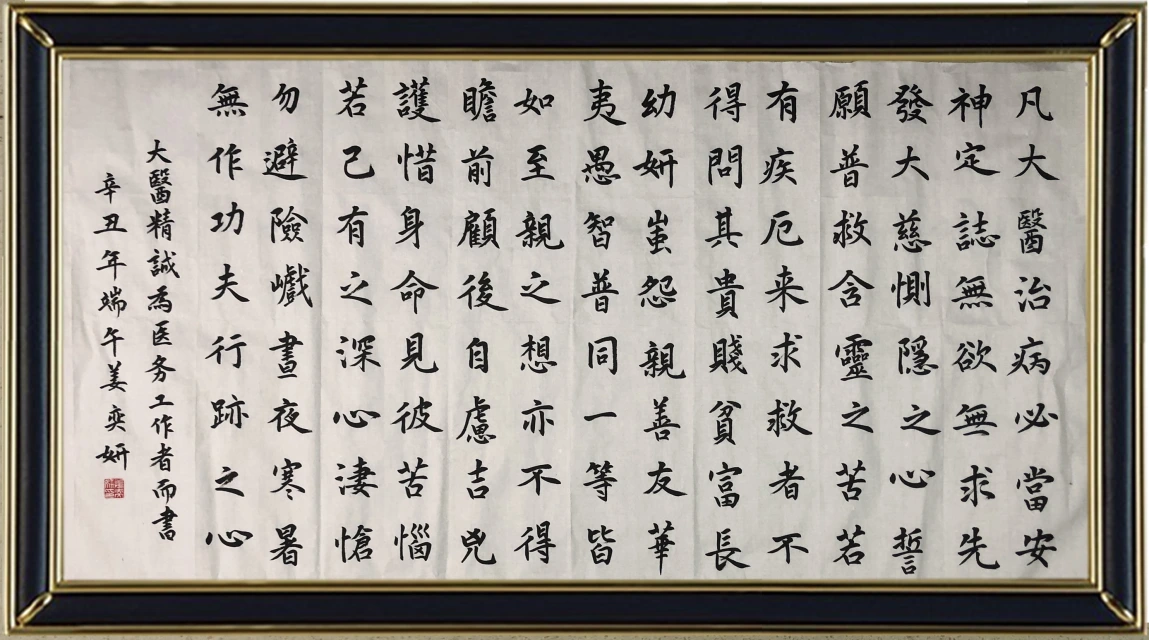 凡大醫治病必當安
神定誌無欲無求先
發大慈惻隱之心誓
願普救含靈之苦若
有疾厄来求救者不
得問其貴賤貧富長
幼妍蚩怨親善友華
夷愚智普同一等皆
如至親之想亦不得
瞻前顧後自慮吉兇
護惜身命見彼苦惱
若己有之深心淒愴
勿避險巇晝夜寒暑
無作功夫行跡之心
大醫精誠為医务工作者而書
辛丑年端午姜奕妍